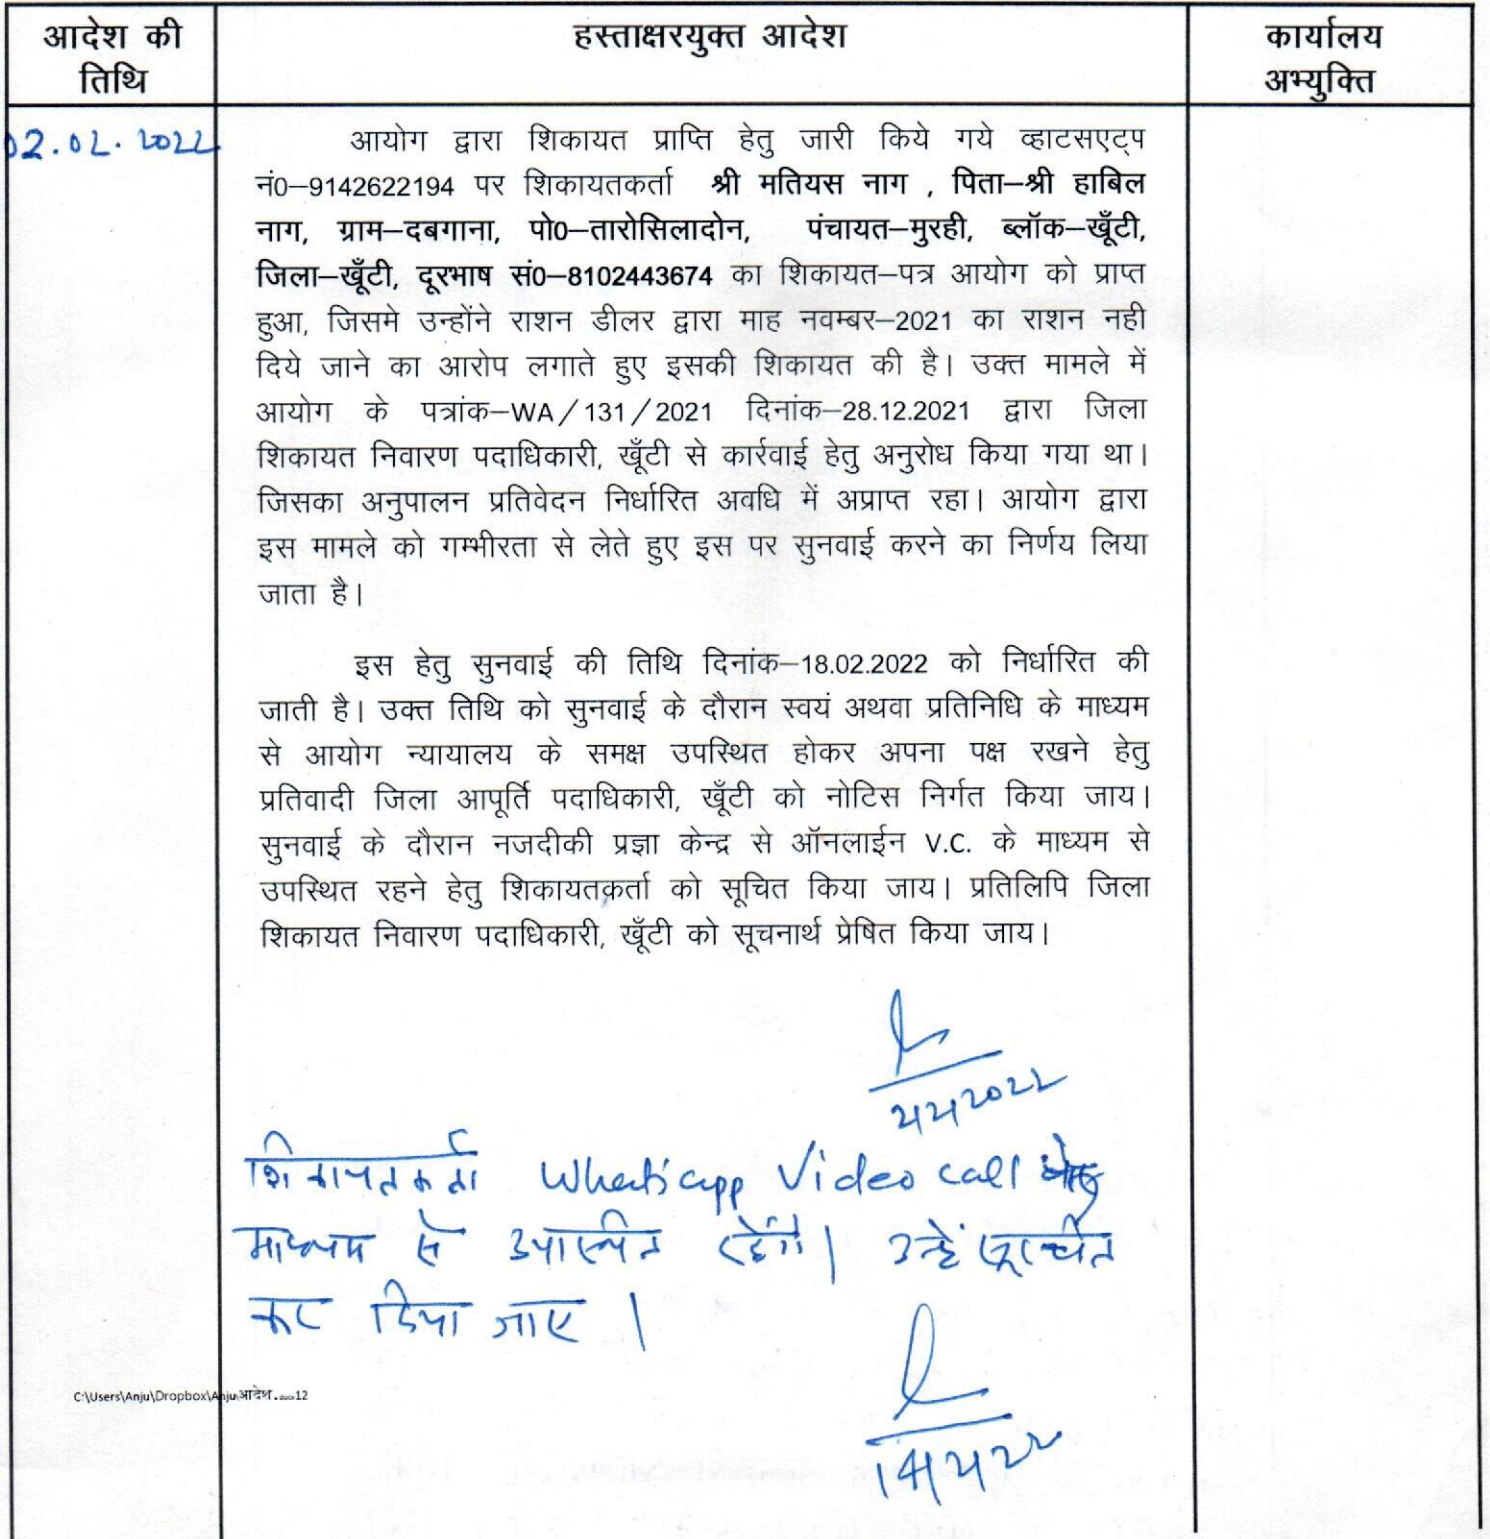 आदेश की
तिथि
हस्ताक्षरयुक्त आदेश
कार्यालय
अभ्युक्ति
02.02.2022
आयोग द्वारा शिकायत प्राप्ति हेतु जारी किये गये व्हाटसएट्प
नं0–9142622194 पर शिकायतकर्ता श्री मतियस नाग , पिता–श्री हाबिल
नाग, ग्राम–दबगाना, पो0–तारोसिलादोन, पंचायत–मुरही, ब्लॉक–खूँटी,
जिला–खूँटी, दूरभाष सं0–8102443674 का शिकायत–पत्र आयोग को प्राप्त
हुआ, जिसमे उन्होंने राशन डीलर द्वारा माह नवम्बर–2021 का राशन नही
दिये जाने का आरोप लगाते हुए इसकी शिकायत की है। उक्त मामले में
आयोग के पत्रांक–WA/131/2021 दिनांक–28.12.2021 द्वारा जिला
शिकायत निवारण पदाधिकारी, खूँटी से कार्रवाई हेतु अनुरोध किया गया था।
जिसका अनुपालन प्रतिवेदन निर्धारित अवधि में अप्राप्त रहा। आयोग द्वारा
इस मामले को गम्भीरता से लेते हुए इस पर सुनवाई करने का निर्णय लिया
जाता है।
इस हेतु सुनवाई की तिथि दिनांक–18.02.2022 को निर्धारित की
जाती है। उक्त तिथि को सुनवाई के दौरान स्वयं अथवा प्रतिनिधि के माध्यम
से आयोग न्यायालय के समक्ष उपस्थित होकर अपना पक्ष रखने हेतु
प्रतिवादी जिला आपूर्ति पदाधिकारी, खूँटी को नोटिस निर्गत किया जाय।
सुनवाई के दौरान नजदीकी प्रज्ञा केन्द्र से ऑनलाईन V.C. के माध्यम से
उपस्थित रहने हेतु शिकायतकर्ता को सूचित किया जाय। प्रतिलिपि जिला
शिकायत निवारण पदाधिकारी, खूँटी को सूचनार्थ प्रेषित किया जाय।
2/2/2022
शिकायतकर्ता Whatsapp Video call
माध्यम से उपस्थित रहेंगे। उन्हें सूचित
कर दिया जाए।
C:\Users\Anju\Dropbox\Anju\आदेश.docx12
14/2/22